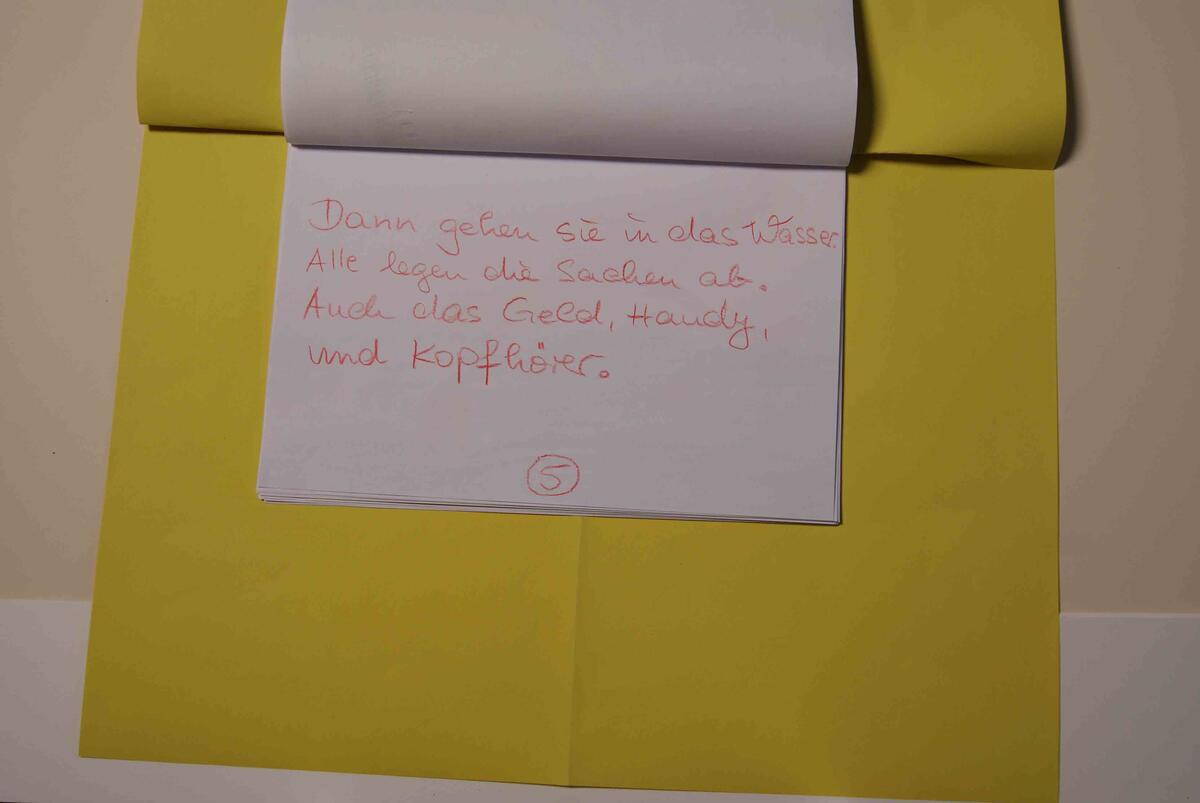 Dann gehen sie in das Wasser.
Alle legen die Sachen ab.
Auch das Geld, Handy,
und Kopfhörer.
5